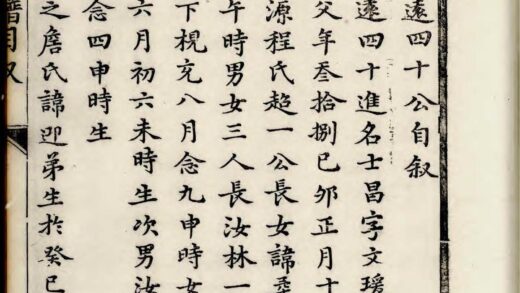 遠四十公自叙
遠四十進名士昌字文瑗
父年叁拾捌已夘正月十
源程氏超一公長女諱
午時男女三人長汝林一
下棿充八月念九申時女
六月初六未時生次男汝
念四申時生
之詹氏諱迎弟生於癸巳
譜自叙